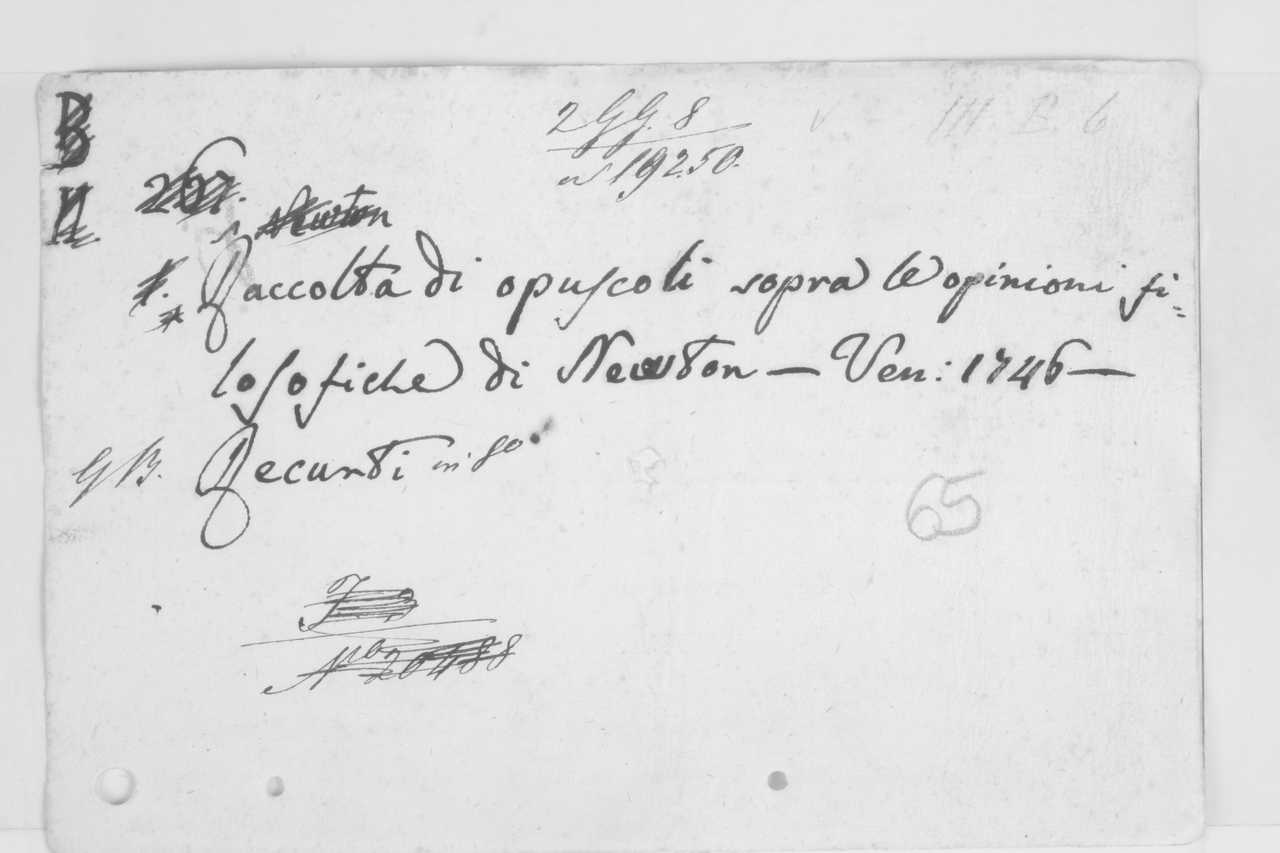 2 GG. 8
III. B. 6
nº 19250.
Newton
Raccolta di opuscoli sopra le opinioni fi-
losofiche di Newton — Ven: 1746 —
GB. Recurti in 8º
65
Nº 20488